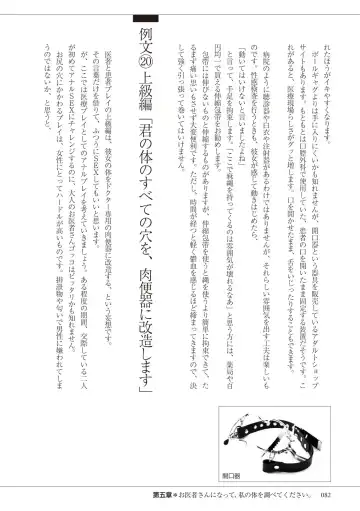 れたほうがイキやすくなります。
ボールギャグよりは手に入りにくいかも知れませんが、開口器という器具を販売しているアダルトショップ
サイトもあります。もともとは口腔外科で使用していた、患者の口を開いたまま固定する装置だそうです。こ
れがあると、医療現場らしさがグッと増します。口を開かせたまま、舌をいじったりすることもできます。
病院のように検診器や白衣や注射器があるわけではありませんが、それらしい雰囲気を出す工夫は楽しいも
のです。性感検査を行うときも、彼女が感じて動きはじめたら、
「動いてはいけないと言いましたよね」
と言って、手足を拘束します。「ここで麻縄を持ってくるのは雰囲気が壊れるなあ」と思う方には、薬局や百
円均一で買える伸縮包帯をお勧めします。
包帯には伸びないものと伸縮するものがありますが、伸縮包帯を使うと縄を使うより簡単に拘束できて、た
いして痛い思いもさせず大変便利です。ただし、時間が経つと軽く鬱血を感じるほど締まってきますので、決
して強く引っ張って巻いてはいけません。
例文⑳ 上級編「君の体のすべての穴を、肉便器に改造します」
医者と患者プレイの上級編は、彼女の体をドクター専用の肉便器に改造する、という妄想です。
その言葉だけを借りて、ふつうにSEXしてもいいと思います。
が、ここでは医療プレイとしてのアナルプレイを考えていきましょう。ある程度の期間、交際している二人
が初めてアナルSEXにチャレンジするのに、大人のお医者さんゴッコはピッタリかも知れません。
お尻の穴にかかわるプレイは、女性にとってハードルが高いものです。排泄物や匂いで男性に嫌われてしま
うのではないか、と思うと、
開口器
第五章＊お医者さんになって、私の体を調べてください。 082